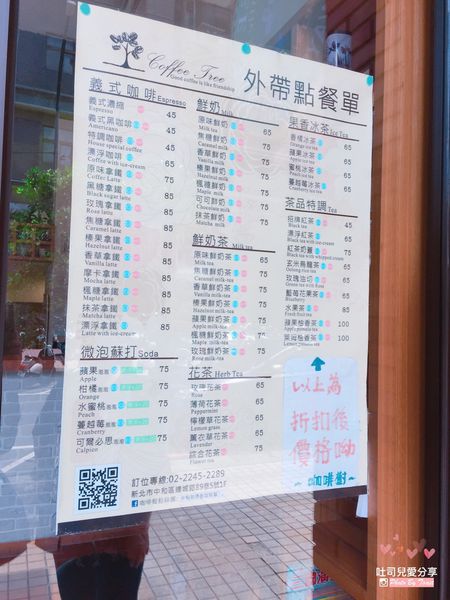 Coffee Tree
Good coffee is like friendship
外帶點餐單
義式咖啡 Espresso
義式濃縮 45
Espresso
義式黑咖啡 45
Americano
特調咖啡 45
House special coffee
漂浮咖啡 65
Coffee with ice-cream
原味拿鐵 65
Coffee Latte
黑糖拿鐵 85
Black sugar latte
玫瑰拿鐵 85
Rose latte
焦糖拿鐵 85
Caramel latte
榛果拿鐵 85
Hazelnut latte
香草拿鐵 85
Vanilla latte
摩卡拿鐵 85
Mocha latte
楓糖拿鐵 85
Maple latte
抹茶拿鐵 85
Matcha latte
漂浮拿鐵 85
Latte with ice-cream
微泡蘇打 Soda
蘋果
Apple
柑橘
Orange
水蜜桃
Peach
蔓越莓
Cranberry
可爾必思
Calpico
鮮奶 Milk
原味鮮奶 65
Milk tea
焦糖鮮奶 75
Caramel milk
香草鮮奶 75
Vanilla milk
榛果鮮奶 75
Hazelnut milk
楓糖鮮奶 75
Maple milk
可可鮮奶 75
Chocolate milk
抹茶鮮奶 75
Matcha milk
鮮奶茶 Milk tea
原味鮮奶茶 65
Milk tea
焦糖鮮奶茶 75
Caramel milk-tea
香草鮮奶茶 75
Vanilla milk-tea
榛果鮮奶茶 75
Hazelnut milk-tea
蘋果鮮奶茶 75
Apple milk-tea
楓糖鮮奶茶 75
Maple milk-tea
玫瑰鮮奶茶 75
Rose milk-tea
花茶 Herb Tea
玫瑰花茶 65
Rose
薄荷花茶 65
Peppermint
檸檬草花茶 65
Lemon grass
薰衣草花茶 65
Lavender
綜合花茶 65
Flower tea
果香冰茶 Ice Tea
香橘冰茶 65
Orange ice tea
蘋果冰茶 65
Apple ice tea
蜜桃冰茶 65
Peach ice tea
蔓越莓冰茶 65
Cranberry ice tea
茶品特調 Tea
招牌紅茶 45
Black tea
漂浮紅茶 65
Black tea with ice-cream
紅茶奶蓋 65
Black tea with whipped cream
玄米烏龍茶 65
Oolong rice tea
玫瑰油切 65
Green tea with Rose
藍莓花果茶 65
Blueberry
水果茶 85
Fresh fruit tea
蘋果柚香茶 100
Apple pomelo tea
柴油柚香茶 100
↑
以上為
折扣後
價格呦
~咖啡樹~
訂位專線:02-2245-2289
新北市中和區連城路89巷5號1F
吐司兒愛分享
Photo by Toast